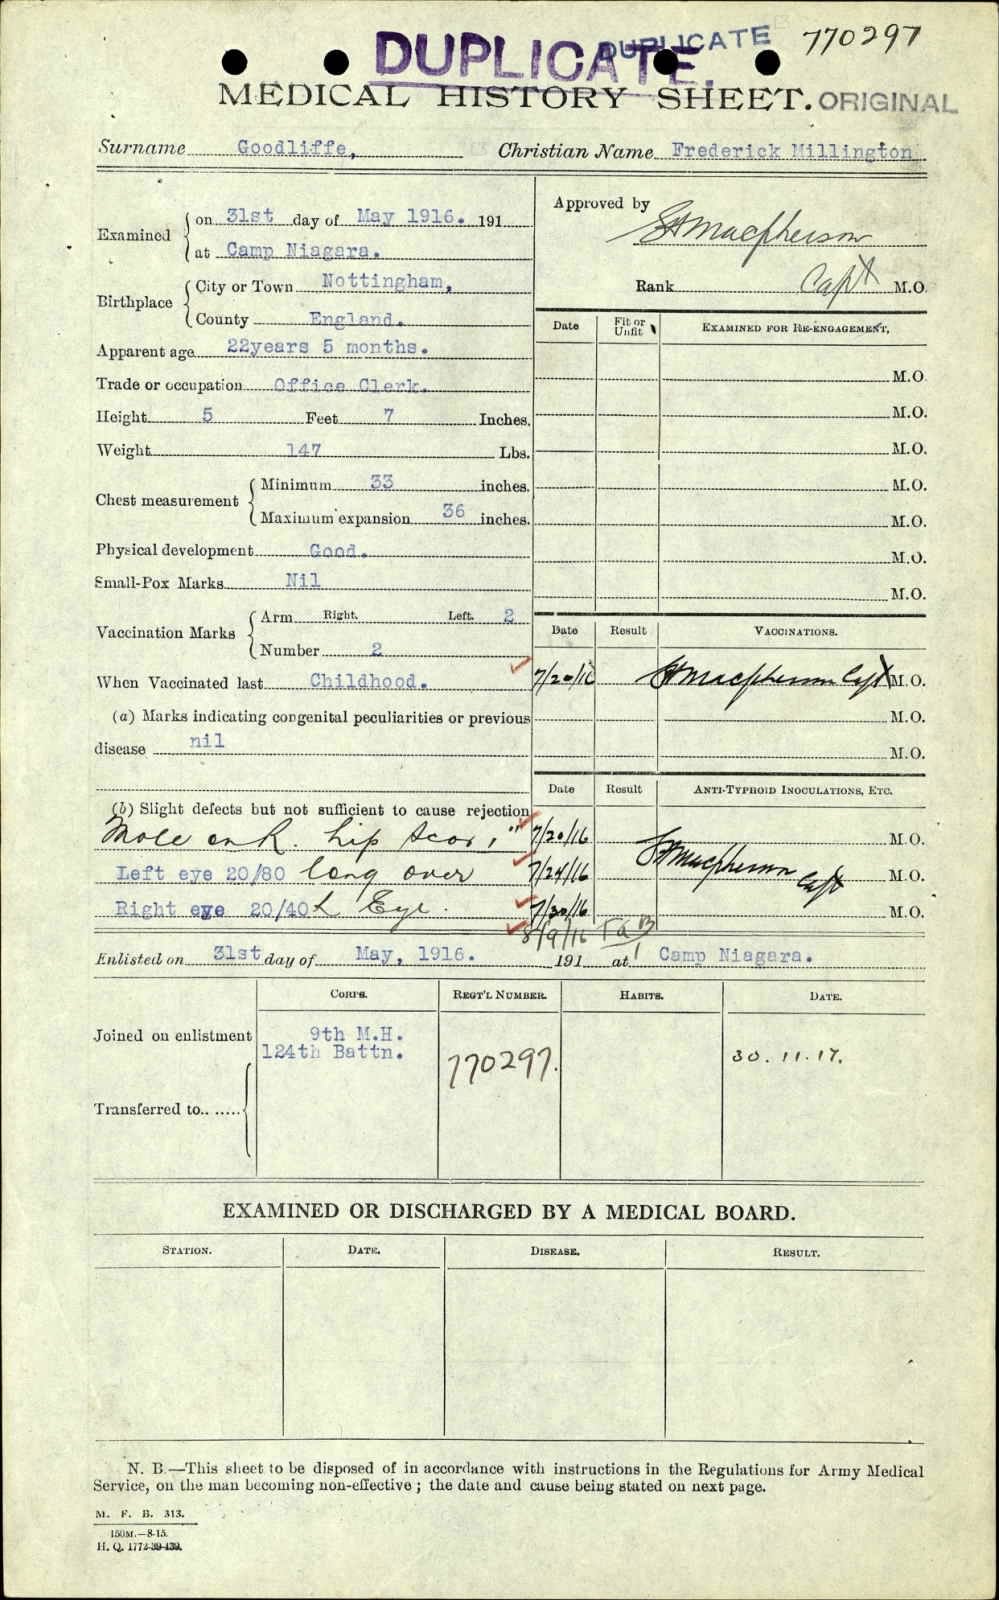 DUPLICATE.
DUPLICATE
770297
MEDICAL HISTORY SHEET. ORIGINAL
Surname Goodliffe, Christian Name Frederick Millington
Examined
on 31st day of May 1916. 191
at Camp Niagara.
Birthplace
City or Town Nottingham,
County England.
Apparent age 22years 5 months.
Trade or occupation Office Clerk.
Height 5 Feet 7 Inches.
Weight 147 Lbs.
Chest measurement
Minimum 33 inches.
Maximum expansion 36 inches.
Physical development Good.
Small-Pox Marks Nil
Vaccination Marks
Arm Right. Left. 2
Number 2
When Vaccinated last Childhood.
(a) Marks indicating congenital peculiarities or previous
disease nil
(b) Slight defects but not sufficient to cause rejection
Mole on R. hip scar 1"
Left eye 20/80 long over
Right eye 20/40 L Eye.
Approved by
Macpherson
Rank Capt M.O.
Date Fit or Unfit EXAMINED FOR RE-ENGAGEMENT,
M.O.
M.O.
M.O.
M.O.
M.O.
M.O.
M.O.
Date Result VACCINATIONS.
7/20/16 Macpherson Capt M.O.
M.O.
M.O.
Date Result ANTI-TYPHOID INOCULATIONS, ETC.
7/20/16 M.O.
7/24/16 Macpherson Capt M.O.
7/30/16 M.O.
8/9/16 TAB
1
Enlisted on 31st day of May, 1916. 191 at Camp Niagara.
CORPS. REGT'L NUMBER. HABITS. DATE.
Joined on enlistment 9th M.H.
124th Battn. 770297. 30.11.17.
Transferred to
EXAMINED OR DISCHARGED BY A MEDICAL BOARD.
STATION. DATE. DISEASE. RESULT.
N. B.—This sheet to be disposed of in accordance with instructions in the Regulations for Army Medical
Service, on the man becoming non-effective; the date and cause being stated on next page.
M. F. B. 313.
150M.—8-15.
H. Q. 1772-39-439.